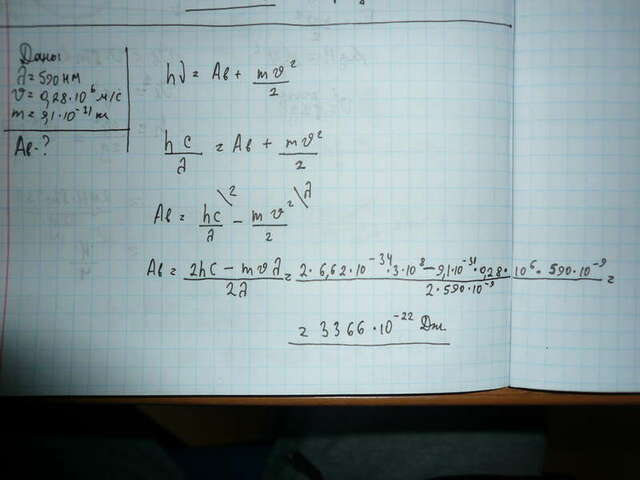 Дано:
λ = 590 нм
v = 0,28·10⁶ м/с
m = 9,1·10⁻³¹ кг
Ав - ?
hν = Ав + mv²/2
hc/λ = Ав + mv²/2
Ав = hc/λ \2 − mv²/2 \λ
Ав = (2hc − mvλ)/2λ = (2·6,62·10⁻³⁴·3·10⁸ − 9,1·10⁻³¹·0,28·10⁶·590·10⁻⁹)/(2·590·10⁻⁹) =
= 3366·10⁻²² Дж.